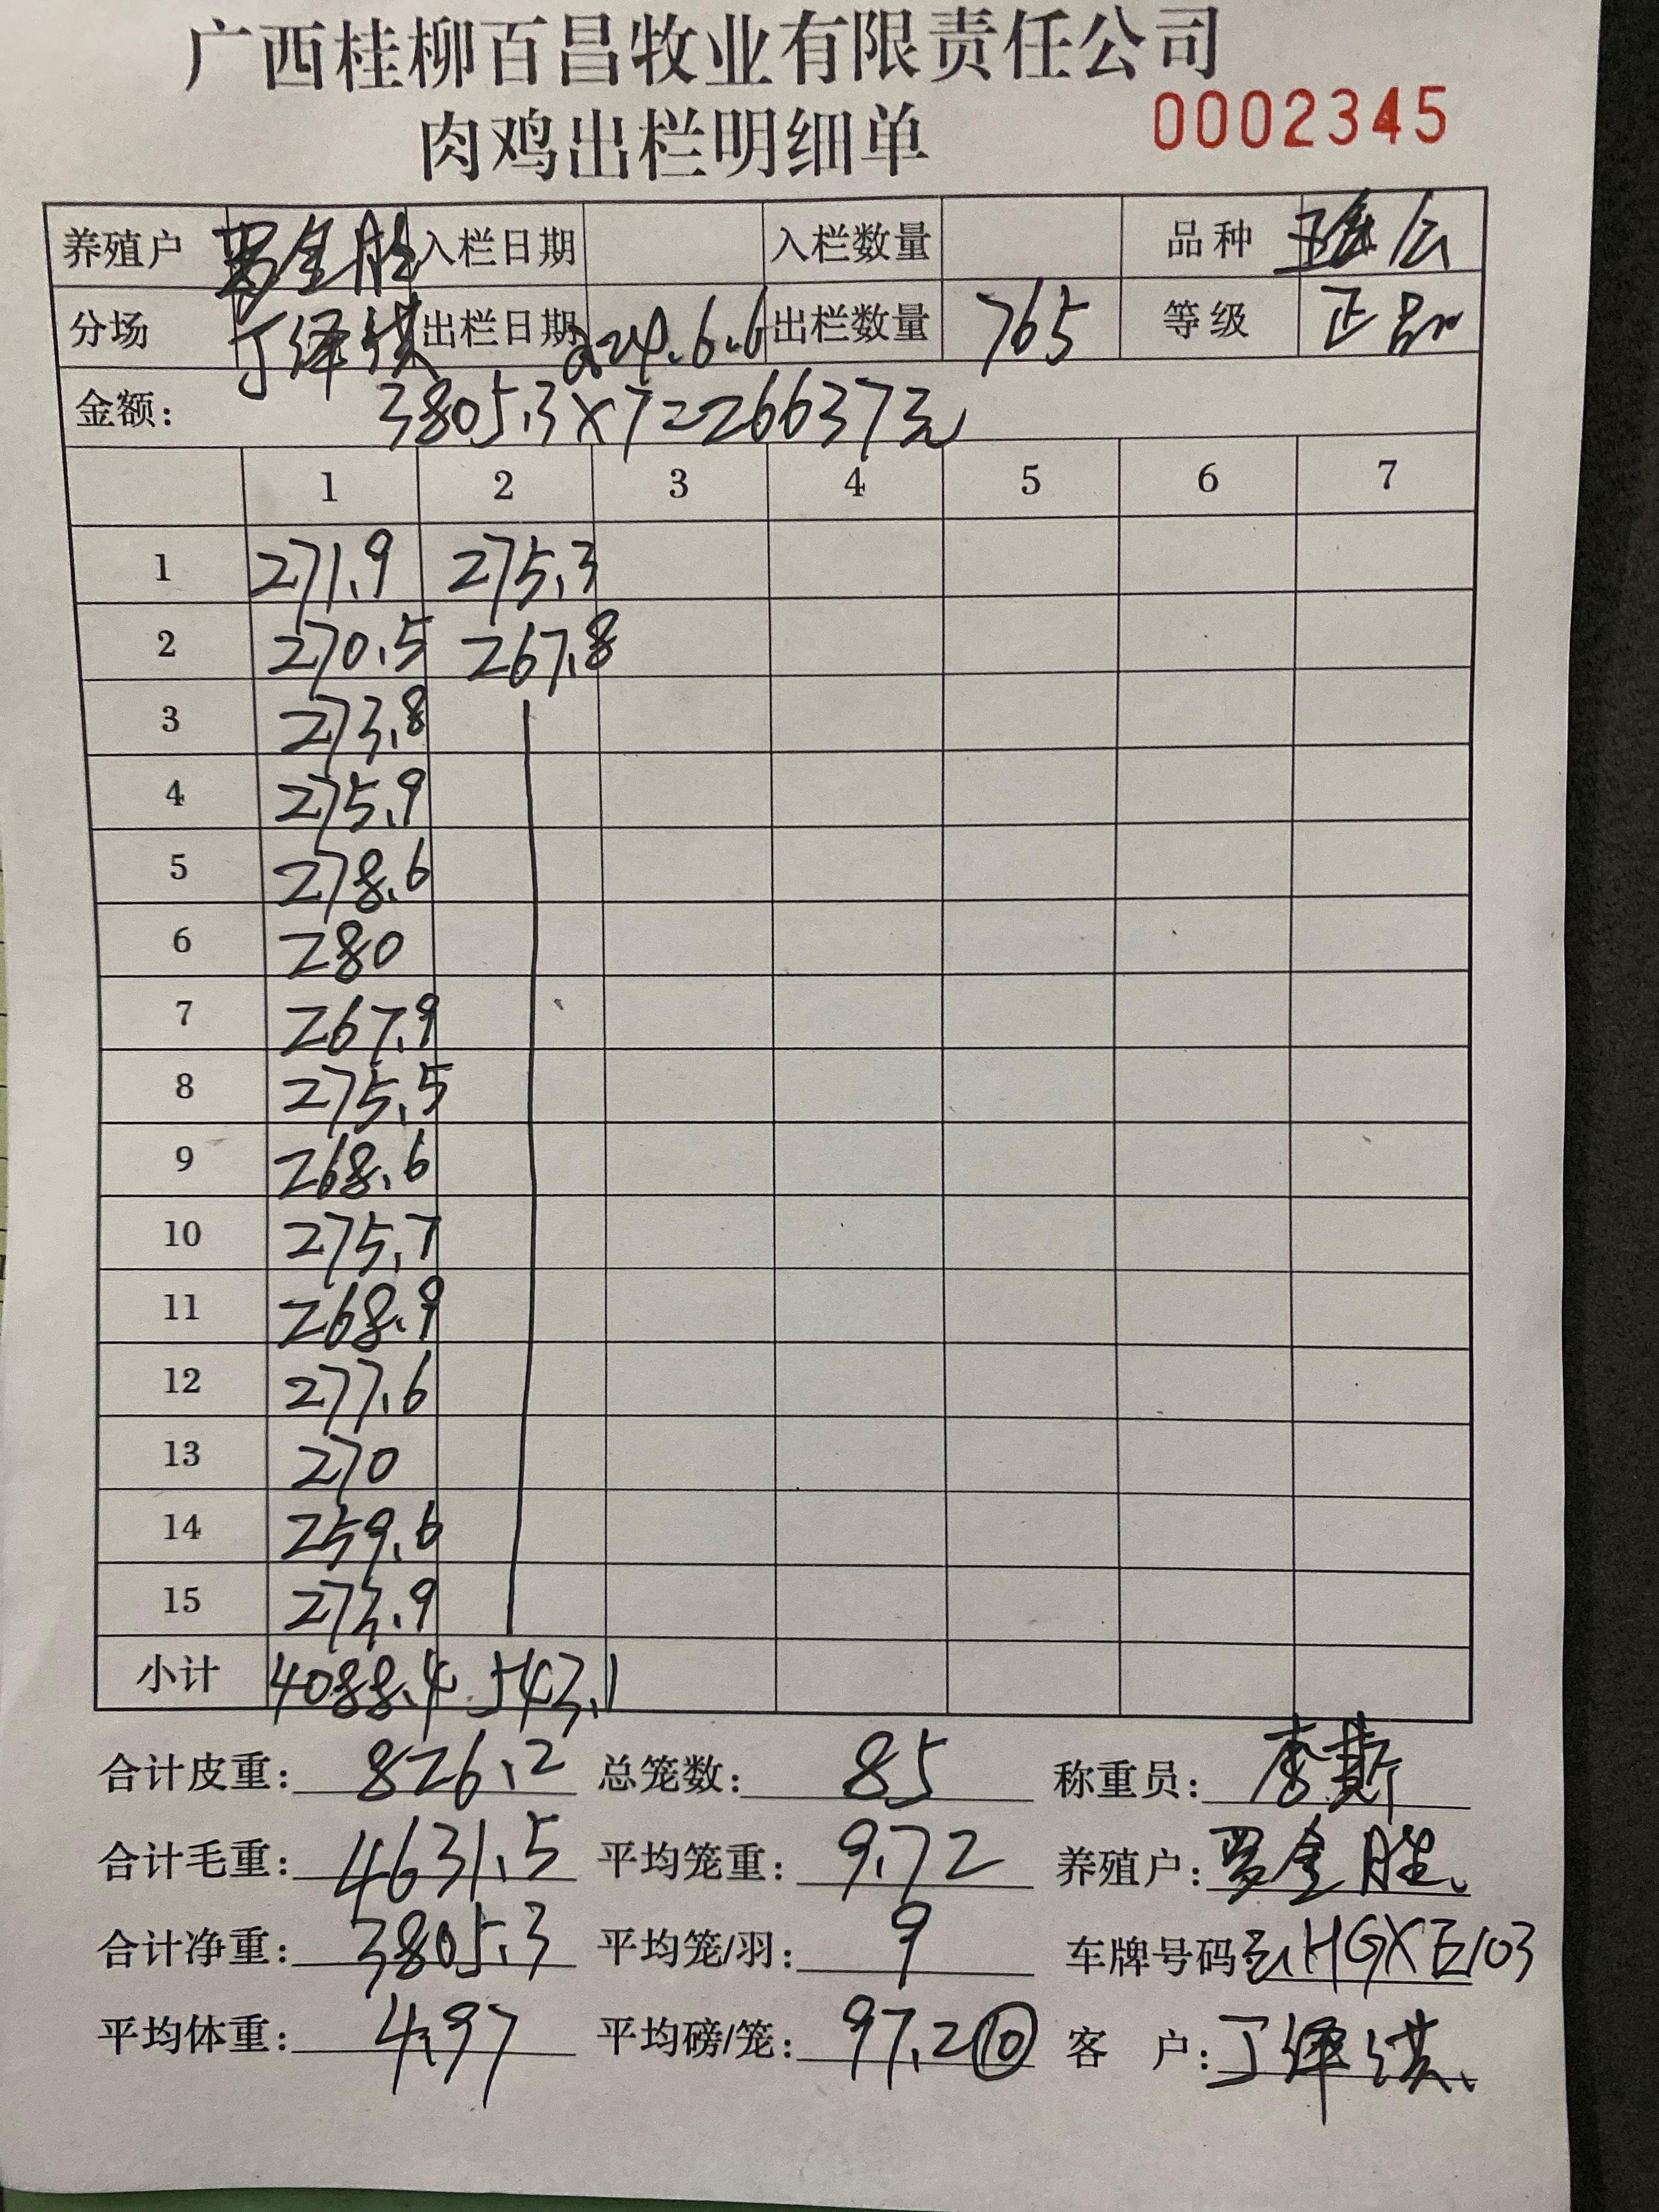 广西桂柳百昌牧业有限责任公司
肉鸡出栏明细单 0002345
养殖户 罗金胜 入栏日期 入栏数量 品种
分场 丁泽淇 出栏日期 224.6.6 出栏数量 765 等级 正品
金额: 3805.3×7=26637元
1 2 3 4 5 6 7
1 271.9 275.3
2 270.5 267.8
3 273.8
4 275.9
5 278.6
6 280
7 267.9
8 275.5
9 268.6
10 275.7
11 268.9
12 277.6
13 270
14 259.6
15 273.9
小计 4088.4 543.1
合计皮重: 826.2 总笼数: 85 称重员: 李斯
合计毛重: 4631.5 平均笼重: 9.72 养殖户: 罗金胜、
合计净重: 3805.3 平均笼/羽: 9 车牌号码: HGXE103
平均体重: 4.97 平均磅/笼: 97.2⑩ 客 户: 丁泽淇、